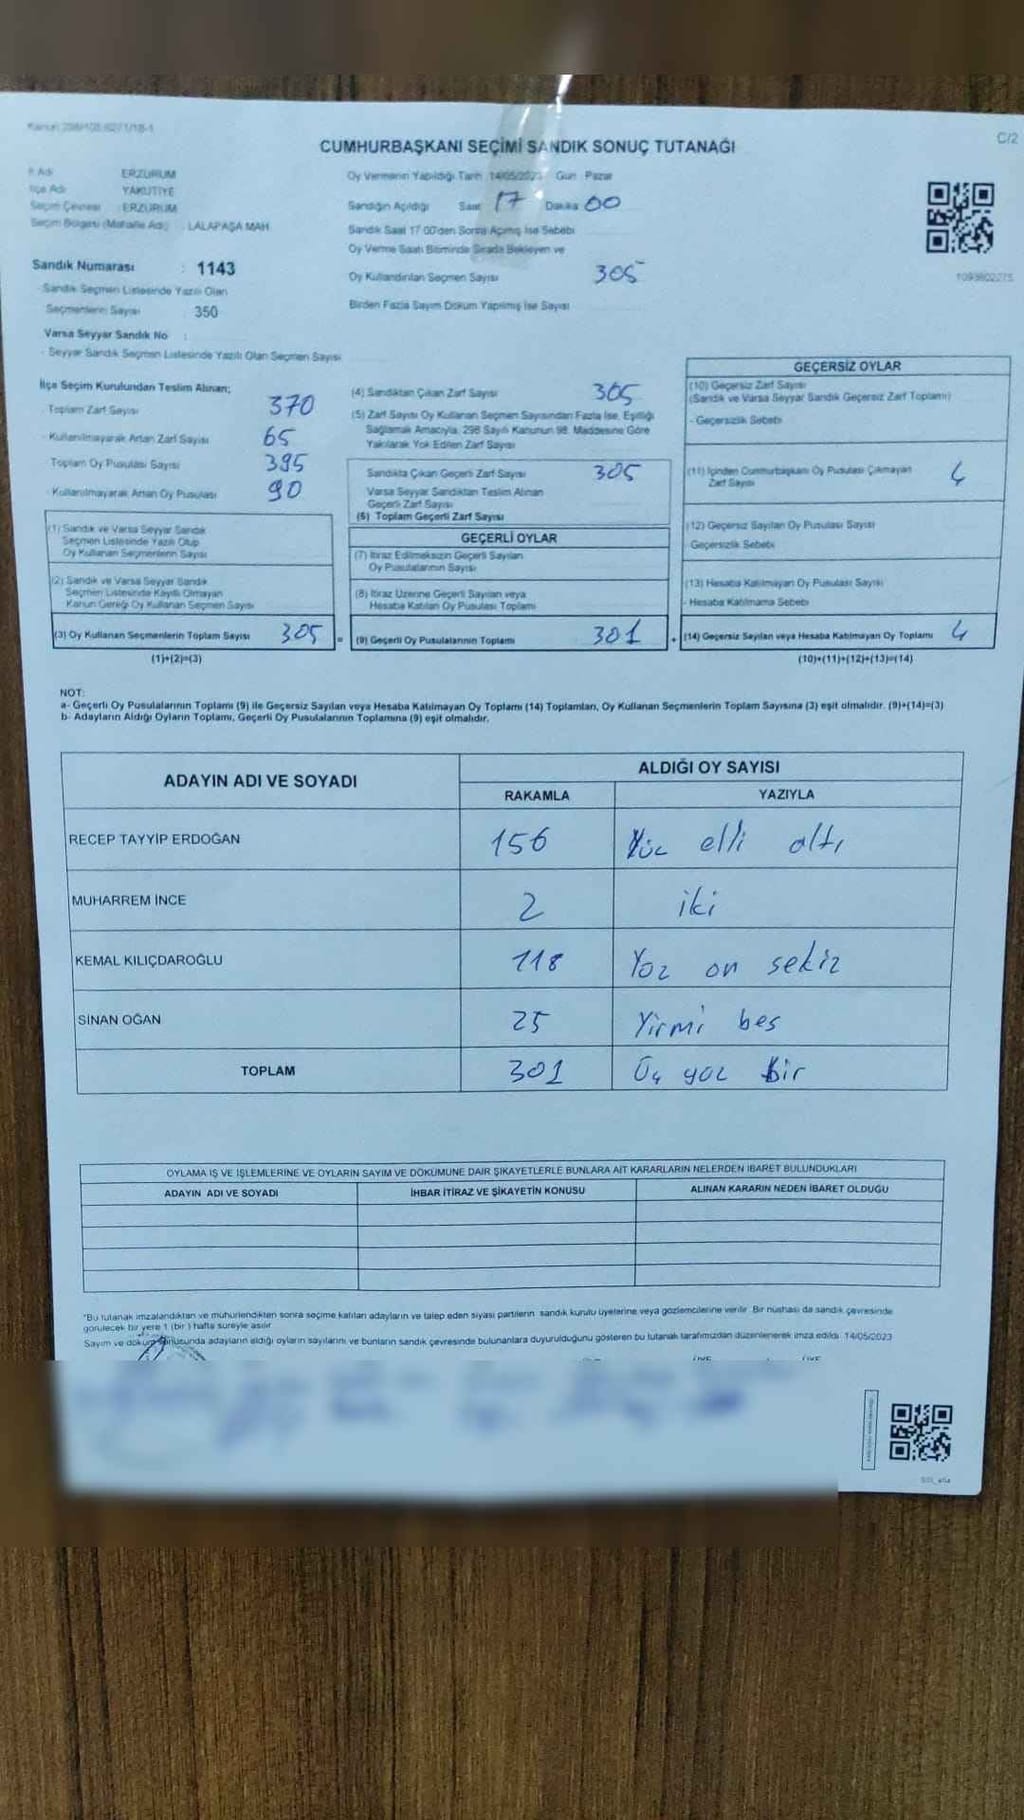 C/2
CUMHURBAŞKANI SEÇİMİ SANDIK SONUÇ TUTANAĞI
İl Adı ERZURUM
İlçe Adı YAKUTİYE
Seçim Çevresi : ERZURUM
Seçim Bölgesi (Mahalle Adı) : LALAPAŞA MAH
Sandık Numarası : 1143
Sandık Seçmen Listesinde Yazılı Olan
Seçmenlerin Sayısı 350
Varsa Seyyar Sandık No :
- Seyyar Sandık Seçmen Listesinde Yazılı Olan Seçmen Sayısı
Oy Vermenin Yapıldığı Tarih 14/05/2023 Gün Pazar
Sandığın Açıldığı Saat 17 Dakika 00
Sandık Saat 17 00'den Sonra Açılmış İse Sebebi
Oy Verme Saati Bitiminde Sırada Bekleyen ve
Oy Kullandırılan Seçmen Sayısı 305
Birden Fazla Sayım Döküm Yapılmış İse Sayısı
1093802275
İlçe Seçim Kurulundan Teslim Alınan;
- Toplam Zarf Sayısı 370
- Kullanılmayarak Artan Zarf Sayısı 65
- Toplam Oy Pusulası Sayısı 395
- Kullanılmayarak Artan Oy Pusulası 90
(1) Sandık ve Varsa Seyyar Sandık
Seçmen Listesinde Yazılı Olup
Oy Kullanan Seçmenlerin Sayısı
(2) Sandık ve Varsa Seyyar Sandık
Seçmen Listesinde Kayıtlı Olmayan
Kanun Gereği Oy Kullanan Seçmen Sayısı
(3) Oy Kullanan Seçmenlerin Toplam Sayısı 305 =
(1)+(2)=(3)
(4) Sandıktan Çıkan Zarf Sayısı 305
(5) Zarf Sayısı Oy Kullanan Seçmen Sayısından Fazla İse, Eşitliği
Sağlamak Amacıyla, 298 Sayılı Kanunun 98. Maddesine Göre
Yakılarak Yok Edilen Zarf Sayısı
Sandıkta Çıkan Geçerli Zarf Sayısı 305
Varsa Seyyar Sandıktan Teslim Alınan
Geçerli Zarf Sayısı
(6) Toplam Geçerli Zarf Sayısı
GEÇERLİ OYLAR
(7) İtiraz Edilmeksizin Geçerli Sayılan
Oy Pusulalarının Sayısı
(8) İtiraz Üzerine Geçerli Sayılan veya
Hesaba Katılan Oy Pusulası Toplamı
(9) Geçerli Oy Pusulalarının Toplamı 301 +
GEÇERSİZ OYLAR
(10) Geçersiz Zarf Sayısı
(Sandık ve Varsa Seyyar Sandık Geçersiz Zarf Toplamı)
- Geçersizlik Sebebi
(11) İçinden Cumhurbaşkanı Oy Pusulası Çıkmayan
Zarf Sayısı 4
(12) Geçersiz Sayılan Oy Pusulası Sayısı
- Geçersizlik Sebebi
(13) Hesaba Katılmayan Oy Pusulası Sayısı
- Hesaba Katılmama Sebebi
(14) Geçersiz Sayılan veya Hesaba Katılmayan Oy Toplamı 4
(10)+(11)+(12)+(13)=(14)
NOT:
a- Geçerli Oy Pusulalarının Toplamı (9) ile Geçersiz Sayılan veya Hesaba Katılmayan Oy Toplamı (14) Toplamları, Oy Kullanan Seçmenlerin Toplam Sayısına (3) eşit olmalıdır. (9)+(14)=(3)
b- Adayların Aldığı Oyların Toplamı, Geçerli Oy Pusulalarının Toplamına (9) eşit olmalıdır.
ADAYIN ADI VE SOYADI ALDIĞI OY SAYISI
RAKAMLA YAZIYLA
RECEP TAYYİP ERDOĞAN 156 Yüz elli altı
MUHARREM İNCE 2 iki
KEMAL KILIÇDAROĞLU 118 Yoz on sekiz
SİNAN OĞAN 25 Yirmi bes
TOPLAM 301 Üç yoz bir
OYLAMA İŞ VE İŞLEMLERİNE VE OYLARIN SAYIM VE DÖKÜMÜNE DAİR ŞİKAYETLERLE BUNLARA AİT KARARLARIN NELERDEN İBARET BULUNDUKLARI
ADAYIN ADI VE SOYADI İHBAR İTİRAZ VE ŞİKAYETİN KONUSU ALINAN KARARIN NEDEN İBARET OLDUĞU
*Bu tutanak imzalandıktan ve mühürlendikten sonra seçime katılan adayların ve talep eden siyasi partilerin sandık kurulu üyelerine veya gözlemcilerine verilir. Bir nüshası da sandık çevresinde
görülecek bir yere 1 (bir ) hafta süreyle asılır
Sayım ve döküm sonusunda adayların aldığı oyların sayılarını ve bunların sandık çevresinde bulunanlara duyurulduğunu gösteren bu tutanak tarafımızdan düzenlenerek imza edildi. 14/05/2023